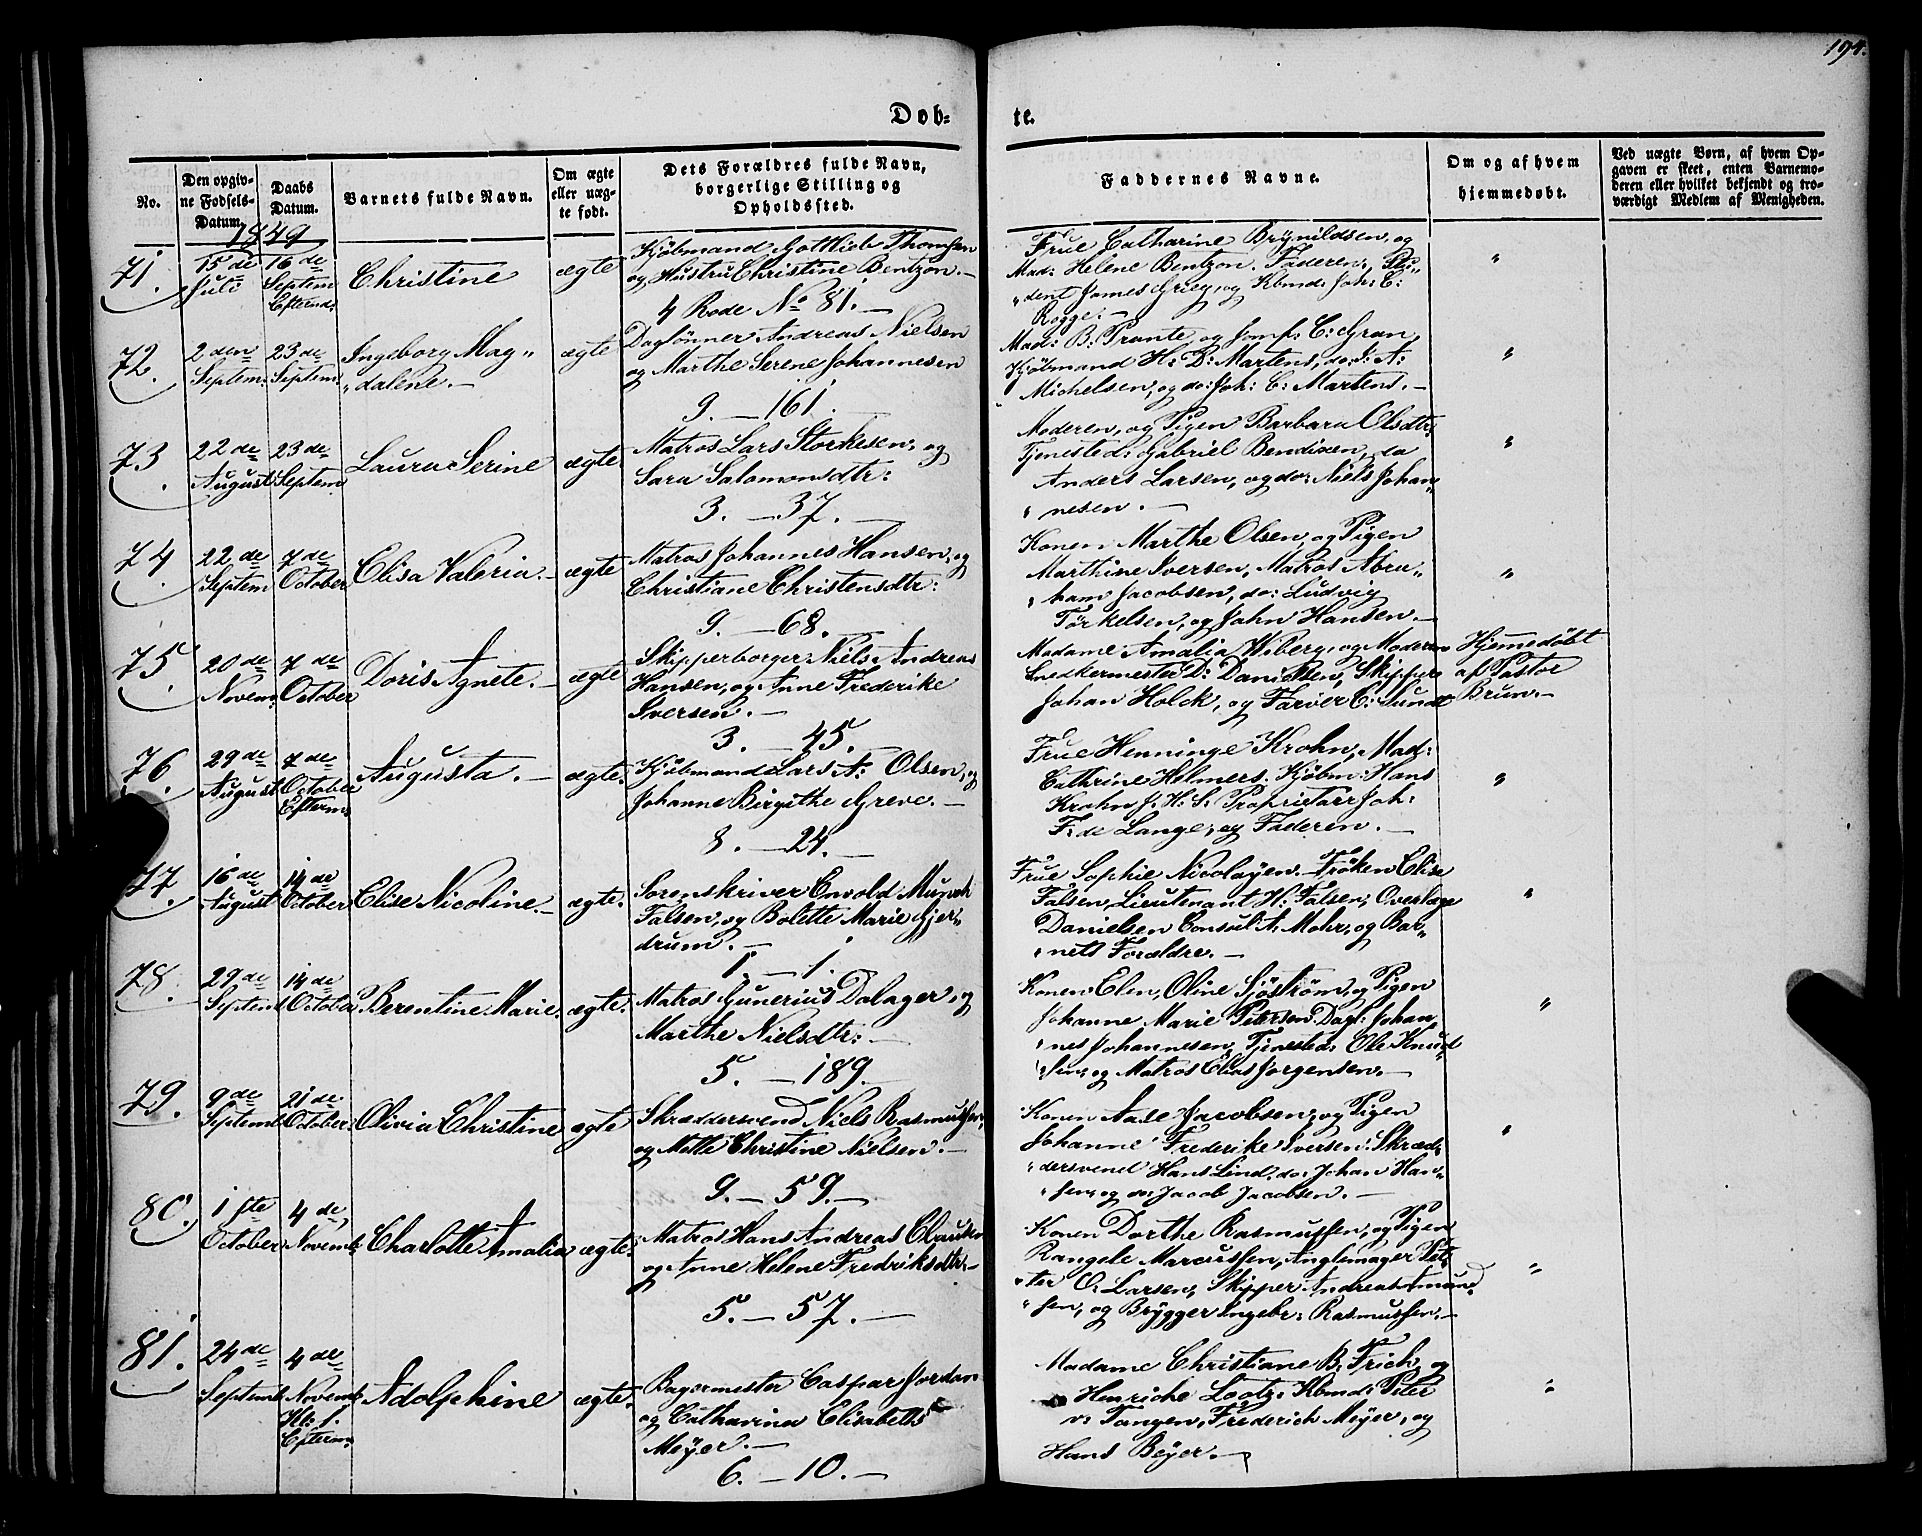 194.
Døb-
te.
No.
Den opgiv-
ne Fødsels-
Datum.
Daabs
Datum.
Barnets fulde Navn.
Om ægte
eller uæg-
te født.
Dets Forældres fulde Navn,
borgerlige Stilling og
Opholdssted.
Faddernes Navne.
Om og af hvem
hjemmedøbt.
Ved uægte Børn, af hvem Op-
gaven er skeet, enten Barnemo-
deren eller hvilket bekjendt og tro-
værdigt Medlem af Menigheden.
1849
71.
15 de
Juli
16 de
Septem
Eftermd:
Christine
ægte
Kjöbmand Gottlieb Thomsen
og Hustru Christine Bentzon.—
4 Rode No 81.—
Frue Catharine Brynildsen, og
Mad: Helene Bentzon. Faderen, Stu„
„dent James Grieg, og Kbmd: Joh: C:
Rogge:—
"
72.
2 den
Septem:
23 de
Septem:
Ingeborg Mag„
„dalene.—
ægte
Daglönner Andreas Nielsen
og Marthe Serene Johannesen
9.—161.
Mad: B. Prante, og Jomf: C: Gran,
Kjöbmand H: D: Martens, do: J: A:
Michelsen, og do: Joh: C: Martens.—
"
73.
22 de
August
23 de
Septem
Laura Serine
ægte
Matros Lars Storkesen, og
Sara Salomonsdtr:
3.—37.—
Moderen, og Pigen Barbara Olsdtr:
Tjenested: Gabriel Bendixen, do
Anders Larsen, og do: Niels Johan„
„nesen.—
"
74.
22 de
Septem
7 de
October
Elisa Valeria.—
ægte
Matros Johannes Hansen, og
Christiane Christensdtr:
9.—68.—
Konen Marthe Olsen, og Pigen
Marthine Iversen, Matros Abra„
„ham Jacobsen, do: Ludvig
Törkelsen, og John Hansen.—
"
75.
20 de
Novem:
7 de
October
Doris Agnete.—
ægte
Skipperborger Niels Andreas
Hansen, og Anne Frederike
Iversen.—
3.—45.
Madame Amalia Wiberg, og Moderen
Snedkermester D: Danielsen, Skipper
Johan Holck, og Farver C: Sundt
Hjemmedöbt
af Pastor
Brun.—
76.
29 de
August
7 de
October
Efterm:
Augusta.—
ægte.
Kjöbmand Lars A: Olsen, og
Johanne Birgithe Greve.—
8.—24.—
Frue Henninge Krohn, Mad:
Cathrine Helmers. Kjöbm: Hans
Krohn J. H: S: Proprietær Joh:
F: de Lange, og Faderen.—
"
77.
16 de
August
14 de
October
Elise Nicoline.—
ægte.
Sorenskriver Envold Munch
Falsen, og Bolette Marie Gjer„
drum.—
1.—1.
Frue Sophie Nicolaysen. Fröken Elise
Falsen, Lieutenant H: Falsen, Overlæge
Danielsen Consul A. Mohr, og Bar„
„nets Forældre.—
"
78.
29 de
Septem
14 de
October
Berentine Marie.
ægte.
Matros Gunerius Dalager, og
Marthe Nielsdtr:—
5.—189.—
Konen Elen, Oline Sjöström, og Pigen
Johanne Marie Petersen. Dagl: Johan
„nes Johannesen, Tjenested: Ole Knud„
„sen, og Matros Elias Jorgensen.—
"
79.
9 de
Septemb
21 de
October
Olivia Christine
ægte
Skræddersvend Niels Rasmussen,
og Mette Christine Nielsen.—
9.—59.—
Konen Aase Jacobsen, og Pigen
Johanne Frederike Iversen. Skræd„
„dersvend Hans Lind. do: Johan Han„
„sen, og do: Jacob Jacobsen.—
"
80.
1 ste
October
4 de
Novemb:
Charlotte Amalia
ægte.
Matros Hans Andreas Clausen
og Anne Helene Fredriksdtr:—
5.—57.—
Konen Dorthe Rasmussen, og Pigen
Rangele Marcussen, Anglemager Pet„
„ter O: Larsen, Skipper Andreas Amund„
„sen, og Brygger Ingebr: Rasmussen.—
"
81.
24 de
Septemb
4 de
Novemb
Kl: 1.
Efterm:
Adolphine
ægte.
Bagermester Caspar Jordan
og Catharina Elisabeth
Meyer.—
6.—10.—
Madame Christiane B: Frich, og
Henriche Lootz. Kbmd: Peter
v: Tangen, Frederich Meyer, og
Hans Beyer.—
"